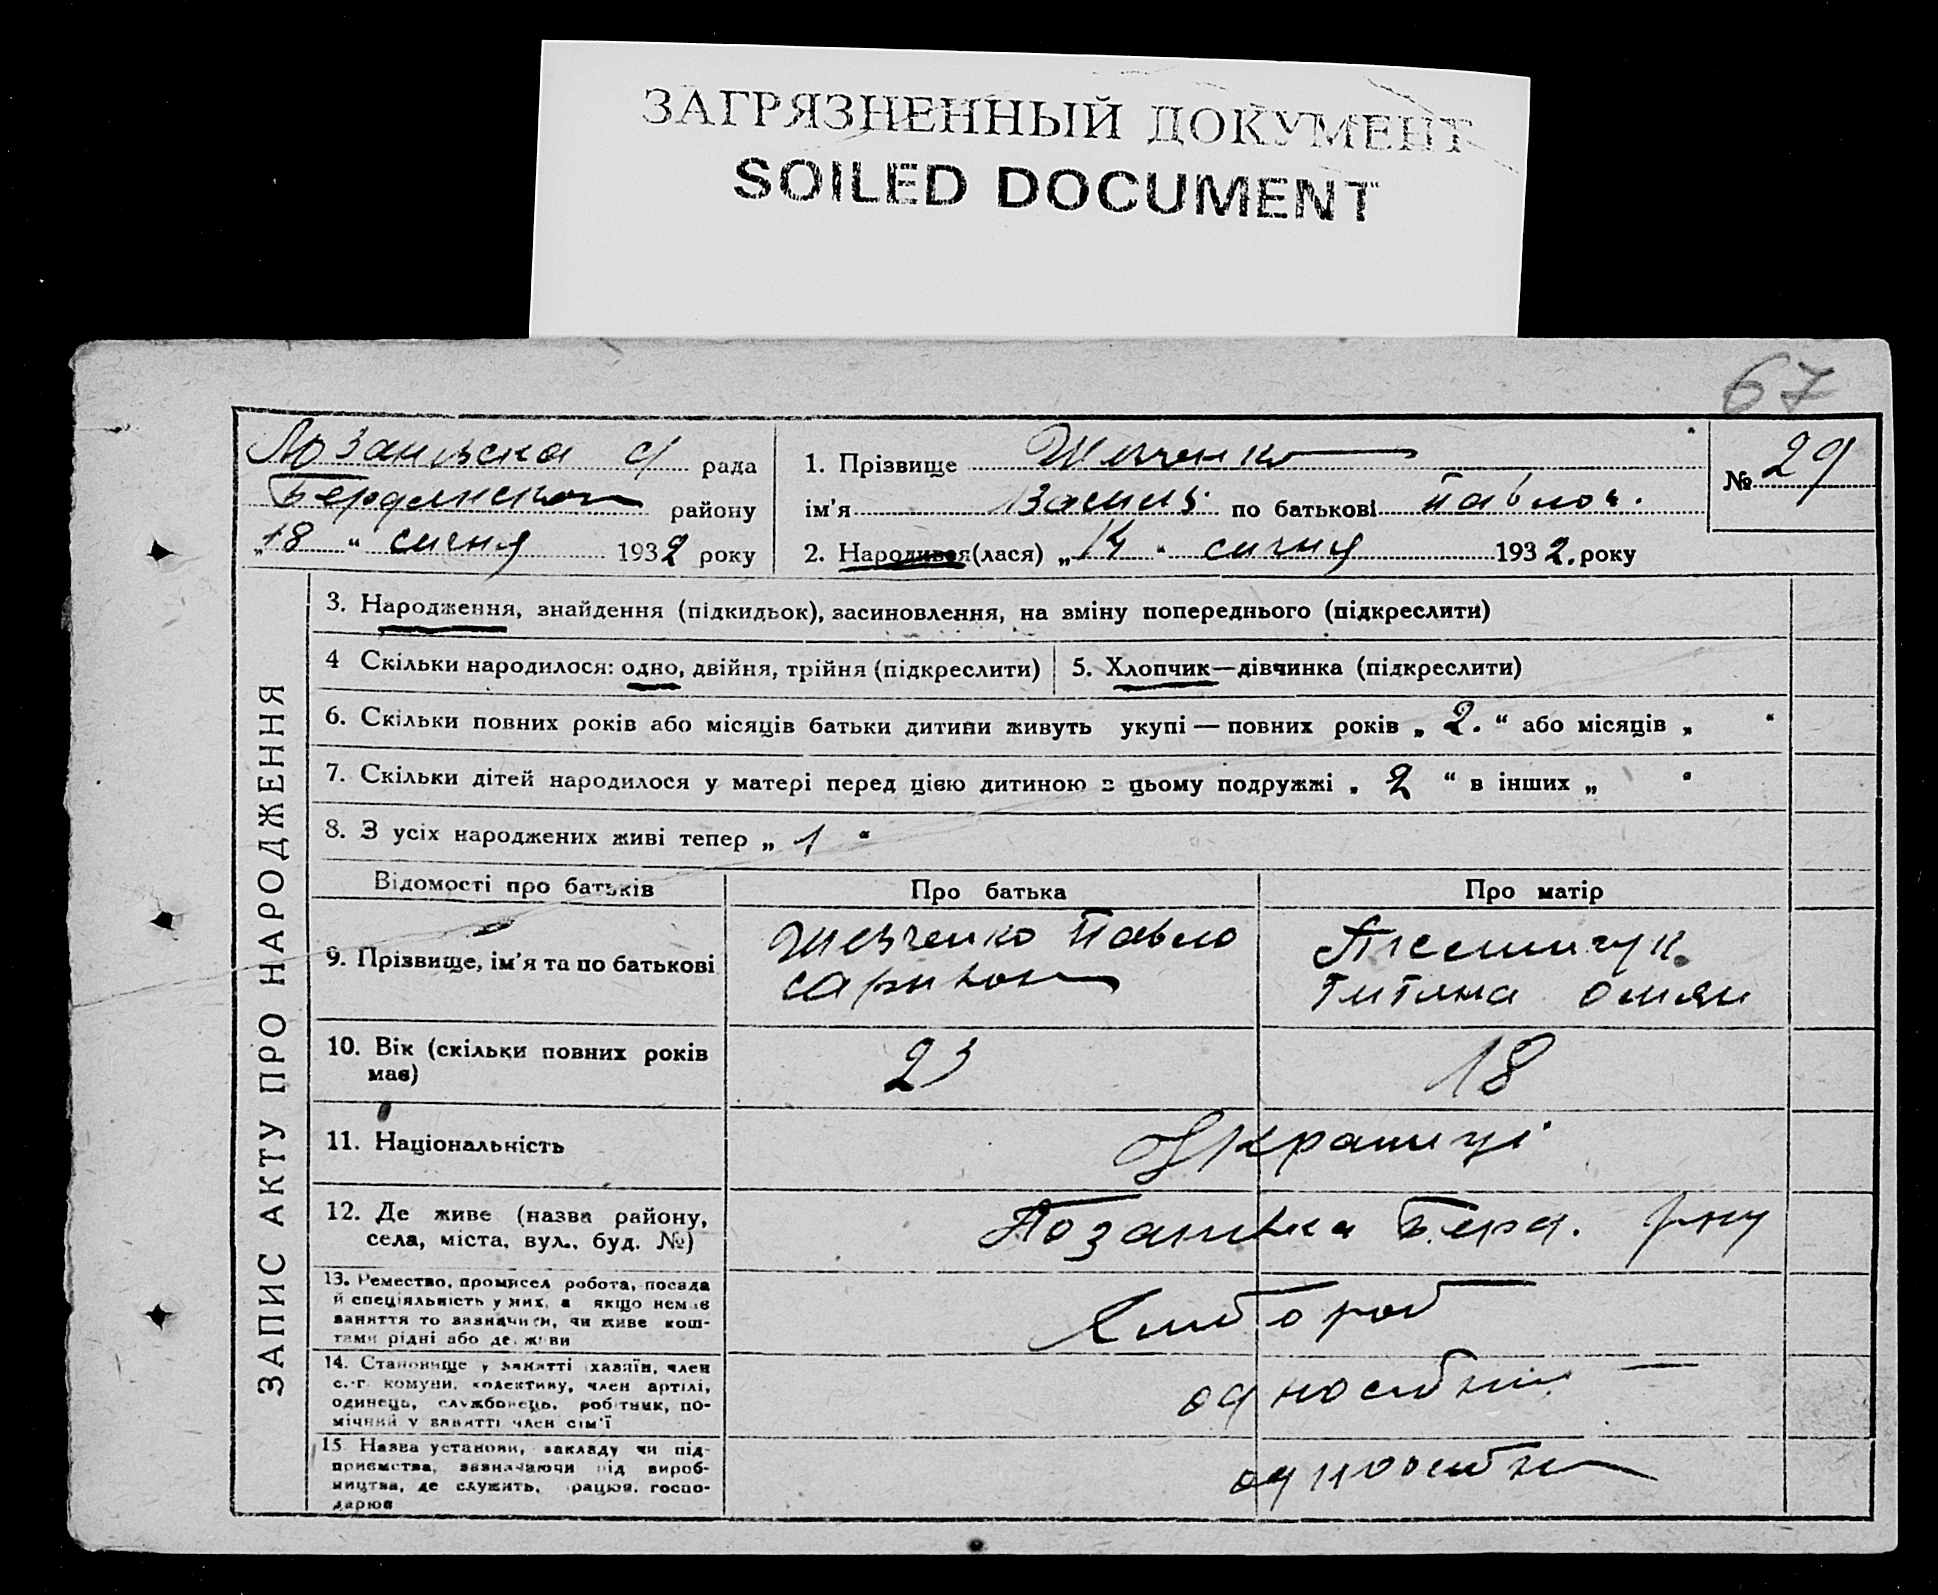 ЗАГРЯЗНЕННЫЙ ДОКУМЕНТ
SOILED DOCUMENT
67
с/ рада
району
„18“ січня 1932 року
1. Прізвище Шевченко
ім'я Василь по батькові Павлов.
2. Народився(лася) „14“ січня 1932. року
№ 29
ЗАПИС АКТУ ПРО НАРОДЖЕННЯ
3. Народження, знайдення (підкидьок), засиновлення, на зміну попереднього (підкреслити)
4 Скільки народилося: одно, двійня, трійня (підкреслити)
5. Хлопчик—дівчинка (підкреслити)
6. Скільки повних років або місяців батьки дитини живуть укупі — повних років „2.“ або місяців „ “
7. Скільки дітей народилося у матері перед цією дитиною в цьому подружжі „2“ в інших „ “
8. З усіх народжених живі тепер „1“
Відомості про батьків
Про батька
Про матір
9. Прізвище, ім'я та по батькові
Шевченко Павло
10. Вік (скільки повних років
має)
23
18
11. Національність
Українці
12. Де живе (назва району,
села, міста, вул., буд. №)
Берд. р-ну
13. Ремество, промисел робота, посада
й спеціяльність у них, а якщо немає
заняття то зазначити, чи живе кош-
тами рідні або держави
Хлібороб
14. Становище у занятті хазяїн, член
с.-г. комуни, колективу, член артілі,
одинець, службовець, робітник, по-
мічний у занятті член сім'ї
одноосібник
15 Назва установи, закладу чи під-
приємства, зазначаючи рід вироб-
ництва, де служить, працює, госпо-
дарює